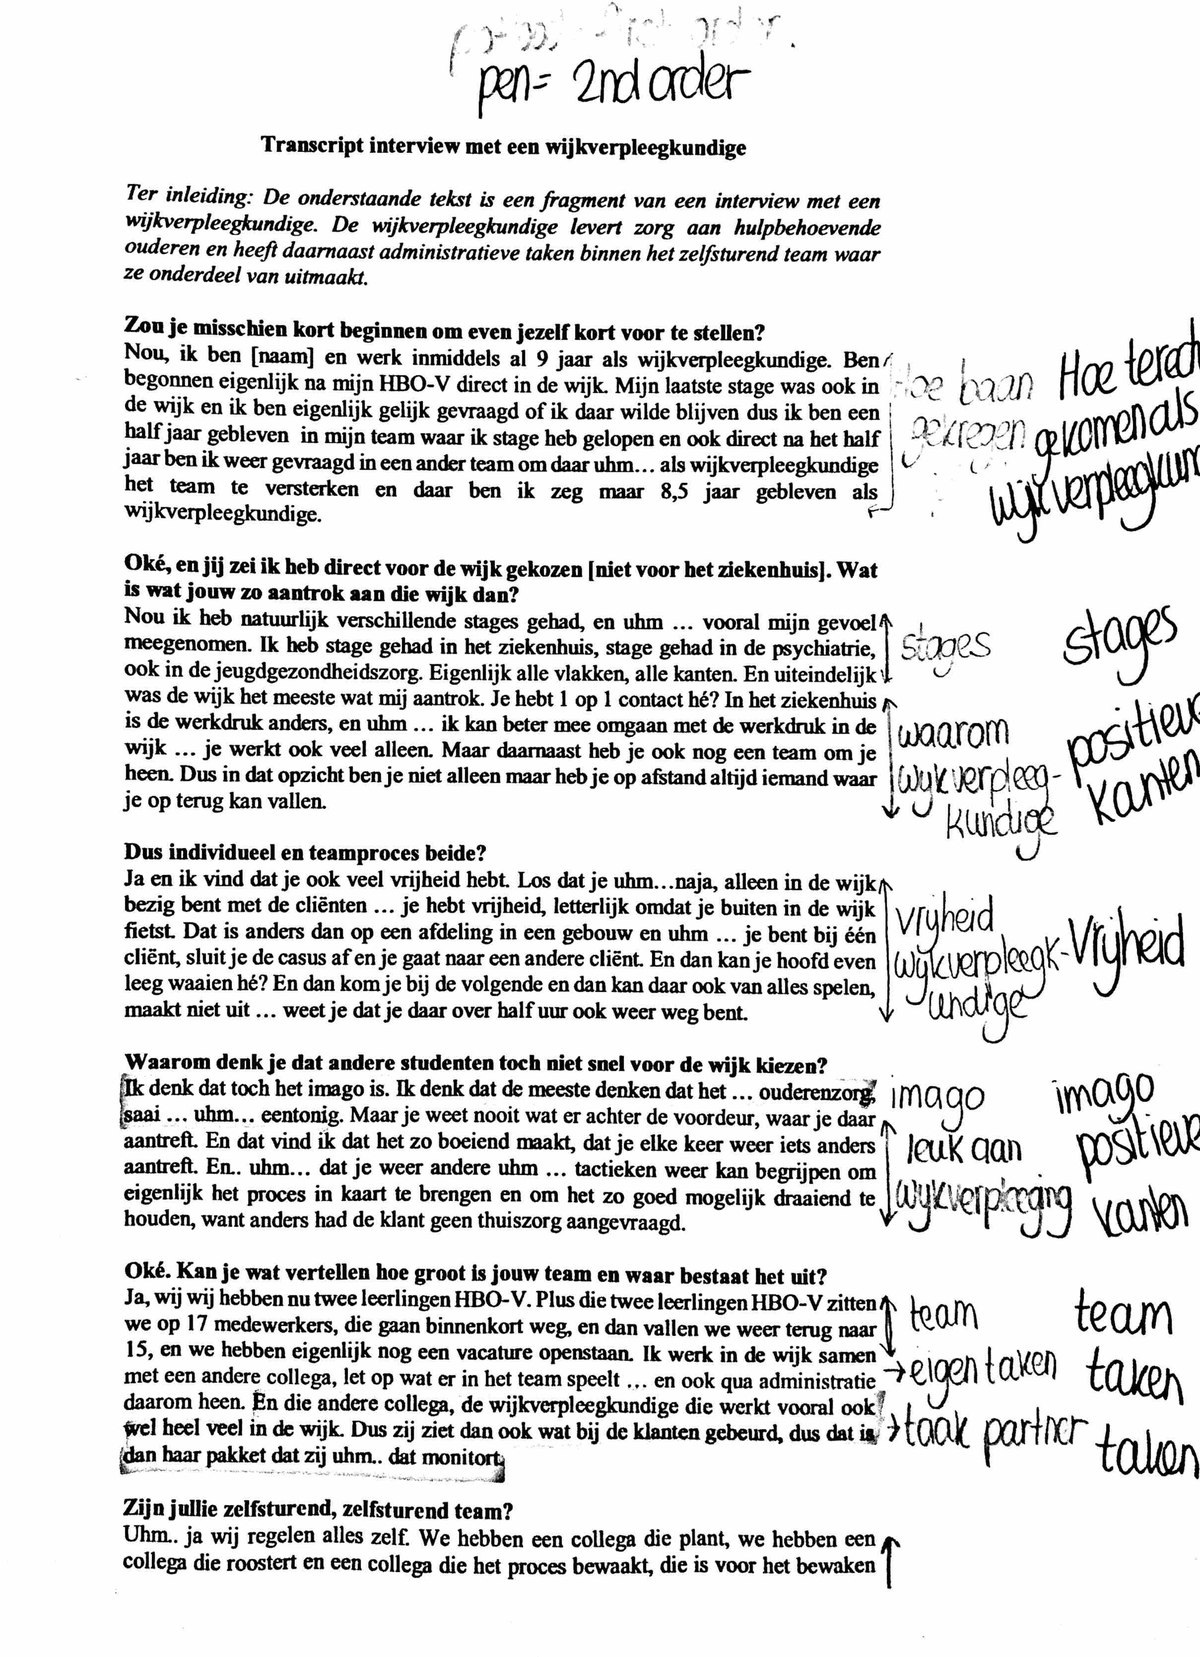 pen= 2nd order
Transcript interview met een wijkverpleegkundige
Ter inleiding: De onderstaande tekst is een fragment van een interview met een
wijkverpleegkundige. De wijkverpleegkundige levert zorg aan hulpbehoevende
ouderen en heeft daarnaast administratieve taken binnen het zelfsturend team waar
ze onderdeel van uitmaakt.
Zou je misschien kort beginnen om even jezelf kort voor te stellen?
Nou, ik ben [naam] en werk inmiddels al 9 jaar als wijkverpleegkundige. Ben
begonnen eigenlijk na mijn HBO-V direct in de wijk. Mijn laatste stage was ook in
de wijk en ik ben eigenlijk gelijk gevraagd of ik daar wilde blijven dus ik ben een
half jaar gebleven in mijn team waar ik stage heb gelopen en ook direct na het half
jaar ben ik weer gevraagd in een ander team om daar uhm... als wijkverpleegkundige
het team te versterken en daar ben ik zeg maar 8,5 jaar gebleven als
wijkverpleegkundige.
Hoe baan
gekregen
Hoe terecht
gekomen als
wijkverpleegkun
Oké, en jij zei ik heb direct voor de wijk gekozen [niet voor het ziekenhuis]. Wat
is wat jouw zo aantrok aan die wijk dan?
Nou ik heb natuurlijk verschillende stages gehad, en uhm ... vooral mijn gevoel
meegenomen. Ik heb stage gehad in het ziekenhuis, stage gehad in de psychiatrie,
ook in de jeugdgezondheidszorg. Eigenlijk alle vlakken, alle kanten. En uiteindelijk
was de wijk het meeste wat mij aantrok. Je hebt 1 op 1 contact hé? In het ziekenhuis
is de werkdruk anders, en uhm ... ik kan beter mee omgaan met de werkdruk in de
wijk ... je werkt ook veel alleen. Maar daarnaast heb je ook nog een team om je
heen. Dus in dat opzicht ben je niet alleen maar heb je op afstand altijd iemand waar
je op terug kan vallen.
stages
stages
waarom
wijkverpleeg-
kundige
positieve
kanten
Dus individueel en teamproces beide?
Ja en ik vind dat je ook veel vrijheid hebt. Los dat je uhm...naja, alleen in de wijk
bezig bent met de cliënten ... je hebt vrijheid, letterlijk omdat je buiten in de wijk
fietst. Dat is anders dan op een afdeling in een gebouw en uhm ... je bent bij één
cliënt, sluit je de casus af en je gaat naar een andere cliënt. En dan kan je hoofd even
leeg waaien hé? En dan kom je bij de volgende en dan kan daar ook van alles spelen,
maakt niet uit ... weet je dat je daar over half uur ook weer weg bent.
vrijheid
wijkverpleegk-
undige
Vrijheid
Waarom denk je dat andere studenten toch niet snel voor de wijk kiezen?
Ik denk dat toch het imago is. Ik denk dat de meeste denken dat het ... ouderenzorg,
saai ... uhm... eentonig. Maar je weet nooit wat er achter de voordeur, waar je daar
aantreft. En dat vind ik dat het zo boeiend maakt, dat je elke keer weer iets anders
aantreft. En.. uhm... dat je weer andere uhm ... tactieken weer kan begrijpen om
eigenlijk het proces in kaart te brengen en om het zo goed mogelijk draaiend te
houden, want anders had de klant geen thuiszorg aangevraagd.
imago
leuk aan
wijkverpleging
imago
positieve
kanten
Oké. Kan je wat vertellen hoe groot is jouw team en waar bestaat het uit?
Ja, wij wij hebben nu twee leerlingen HBO-V. Plus die twee leerlingen HBO-V zitten
we op 17 medewerkers, die gaan binnenkort weg, en dan vallen we weer terug naar
15, en we hebben eigenlijk nog een vacature openstaan. Ik werk in de wijk samen
met een andere collega, let op wat er in het team speelt ... en ook qua administratie
daarom heen. En die andere collega, de wijkverpleegkundige die werkt vooral ook
wel heel veel in de wijk. Dus zij ziet dan ook wat bij de klanten gebeurd, dus dat is
dan haar pakket dat zij uhm.. dat monitort.
team
eigen taken
taak partner
team
taken
taken
Zijn jullie zelfsturend, zelfsturend team?
Uhm.. ja wij regelen alles zelf. We hebben een collega die plant, we hebben een
collega die roostert en een collega die het proces bewaakt, die is voor het bewaken